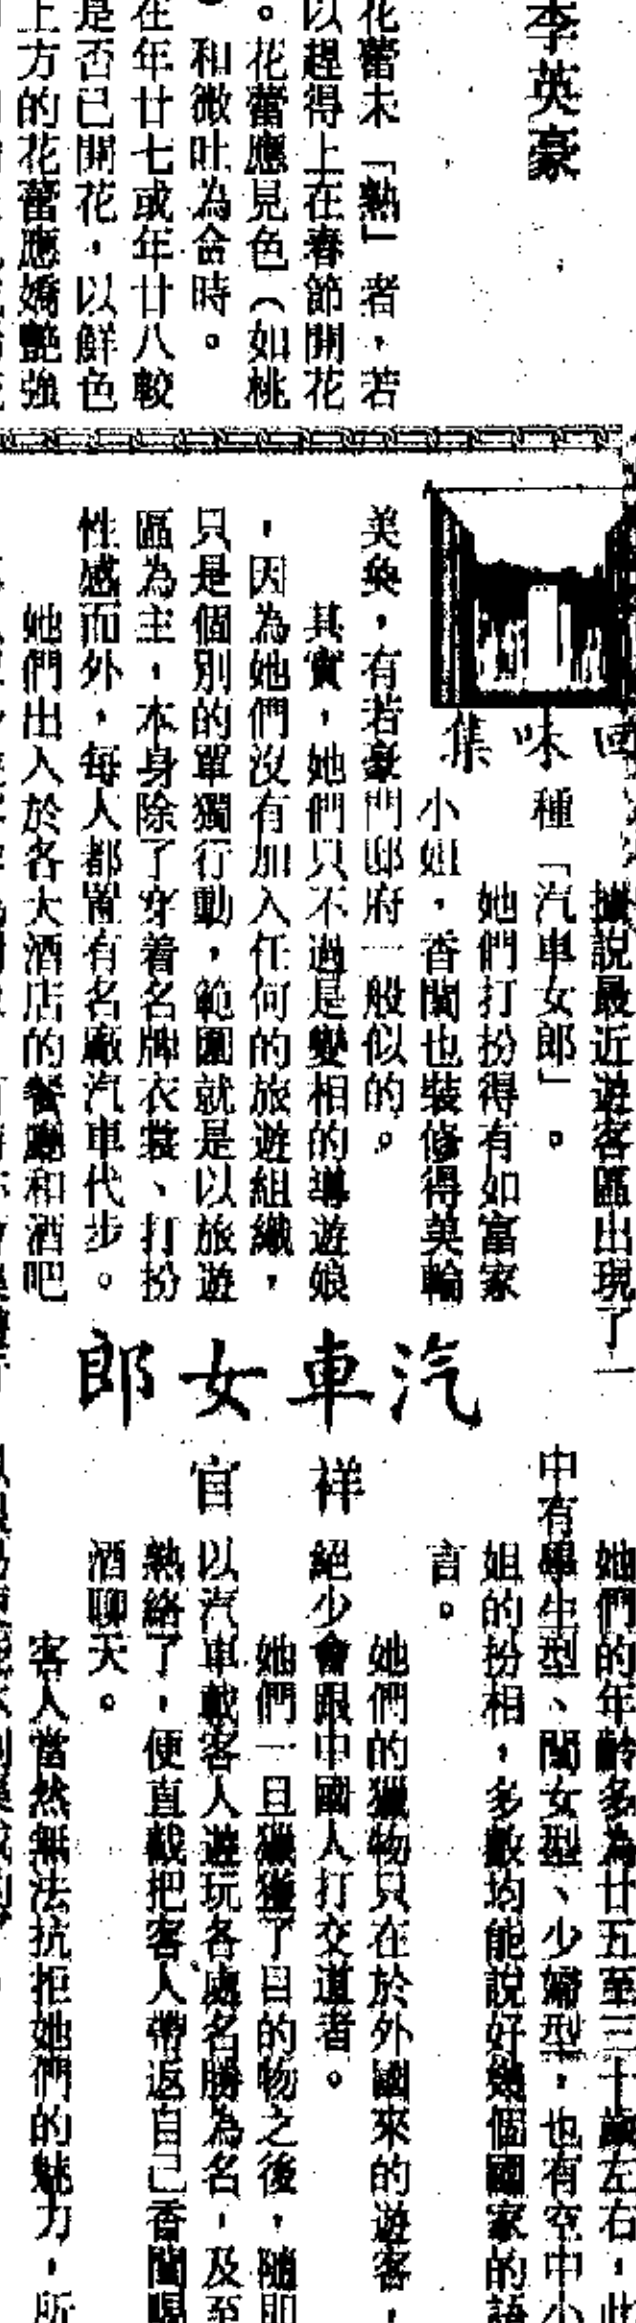 李英豪
花蕾未「熟」者，若
以趕得上在春節開花
。花蕾應見色（如桃
和微吐為合時。
在年廿七或年廿八較
是否已開花，以鮮色
上方的花蕾應嬌艷強
回味集
汽車女郎
祥官
據說最近遊客區出現了一
種「汽車女郎」。
她們打扮得有如富家
小姐，香閨也裝修得美輪
美奐，有若豪門邸府一般似的。
其實，她們只不過是變相的導遊娘
，因為她們沒有加入任何的旅遊組織，
只是個別的單獨行動，範圍就是以旅遊
區為主，本身除了穿着名牌衣裳、打扮
性感而外，每人都置有名廠汽車代步。
她們出入於各大酒店的餐廳和酒吧
她們的年齡多為廿五至三十歲左右，此
中有學生型、閨女型、少婦型，也有空中小
姐的扮相，多數均能說好幾個國家的語
言。
她們的獵物只在於外國來的遊客，
絕少會跟中國人打交道者。
她們一旦獵獲了目的物之後，隨即
以汽車載客人遊玩各處名勝為名，及至
熟絡了，便直載把客人帶返自己香閨喝
酒聊天。
客人當然無法抗拒她們的魅力，所